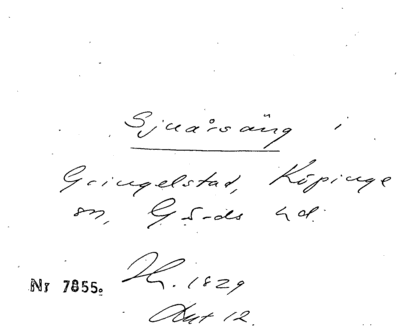 Sjuårsäng i
Gringelstad, Köpinge
sn, Gärds hd.
Nr 7855.
1829
12.